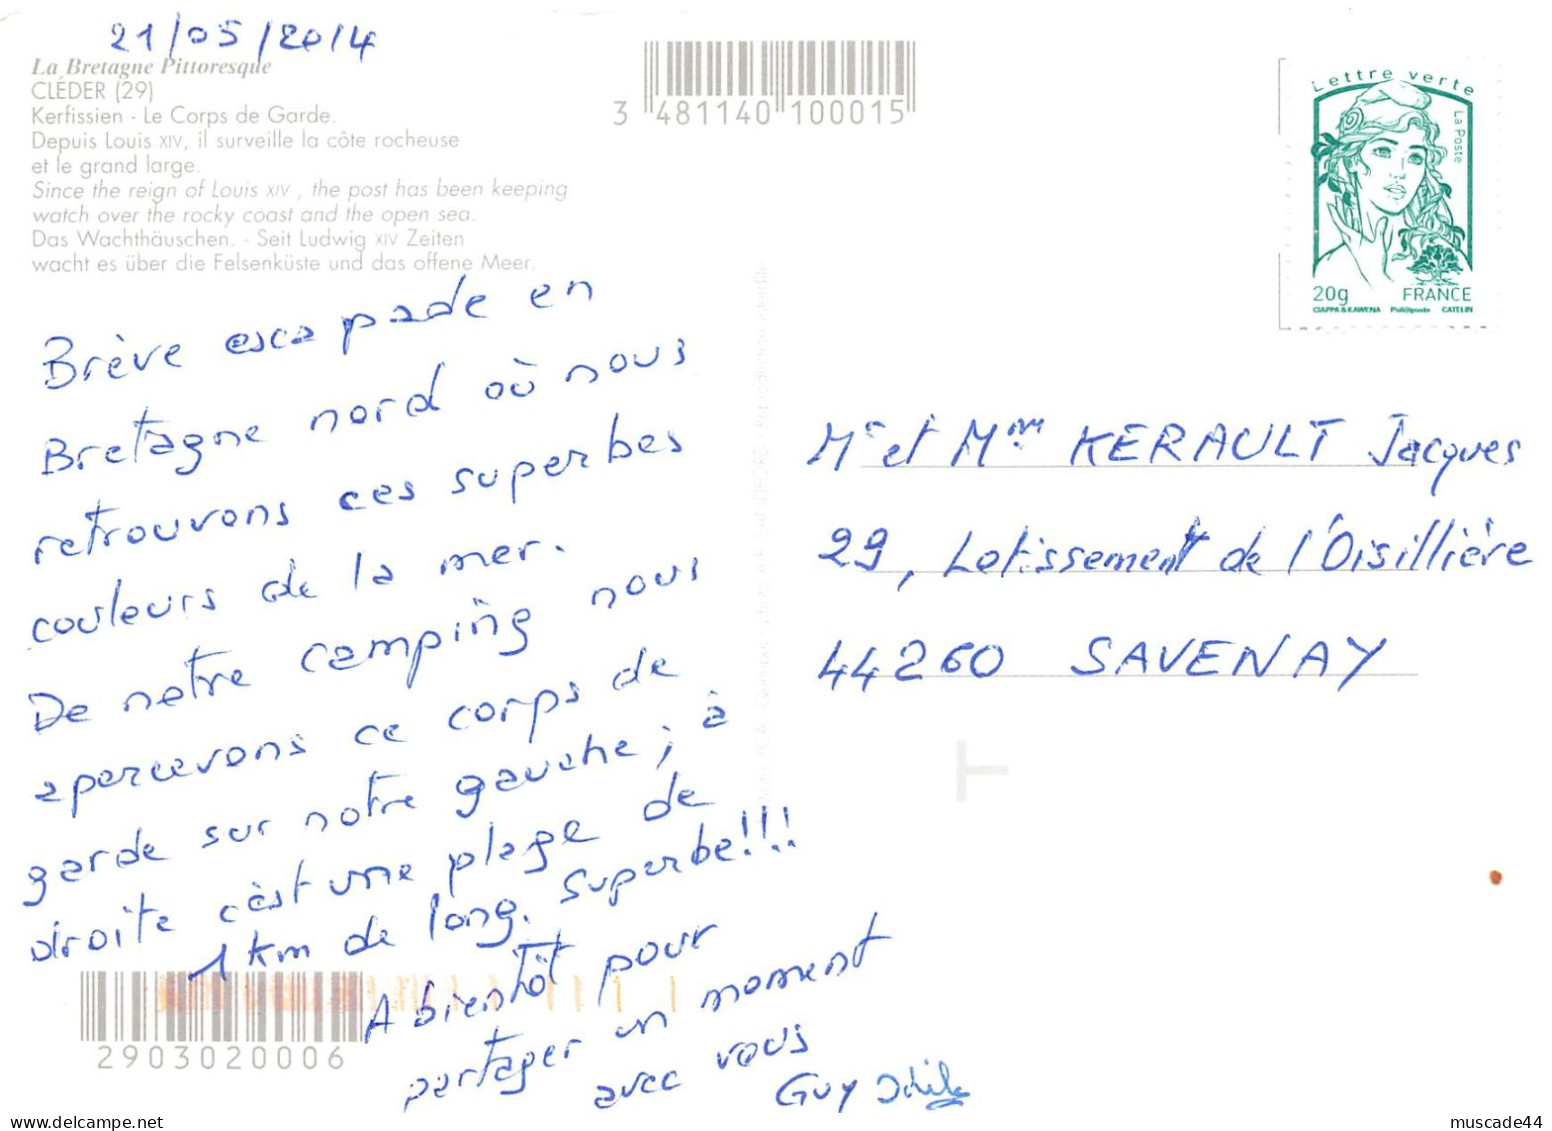 21/05/2014
La Bretagne Pittoresque
CLÉDER (29)
Kerfissien - Le Corps de Garde.
Depuis Louis XIV, il surveille la côte rocheuse
et le grand large.
Since the reign of Louis XIV , the post has been keeping
watch over the rocky coast and the open sea.
Das Wachthäuschen. - Seit Ludwig XIV Zeiten
wacht es über die Felsenküste und das offene Meer.
3 481140 100015
Lettre verte
La Poste
20g FRANCE
CIAPPA & KAWENA Phil@poste CATELIN
Brève escapade en
Bretagne nord où nous
retrouvons ces superbes
couleurs de la mer.
De notre camping nous
apercevons ce corps de
garde sur notre gauche ; à
droite c'est une plage de
1 km de long. Superbe!!!
A bientôt pour
partager un moment
avec vous
Guy
Mr et Mme KERAULT Jacques
29, Lotissement de l'Oisillière
44260 SAVENAY
2903020006
muscade44